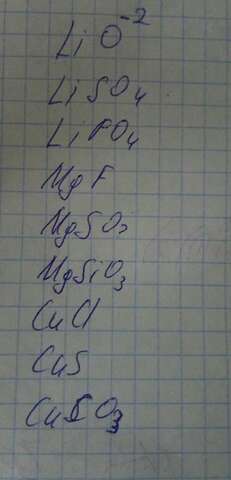 Li O⁻²
Li SO₄
Li PO₄
Mg F
MgSO₃
MgSiO₃
CuCl
CuS
CuSO₃